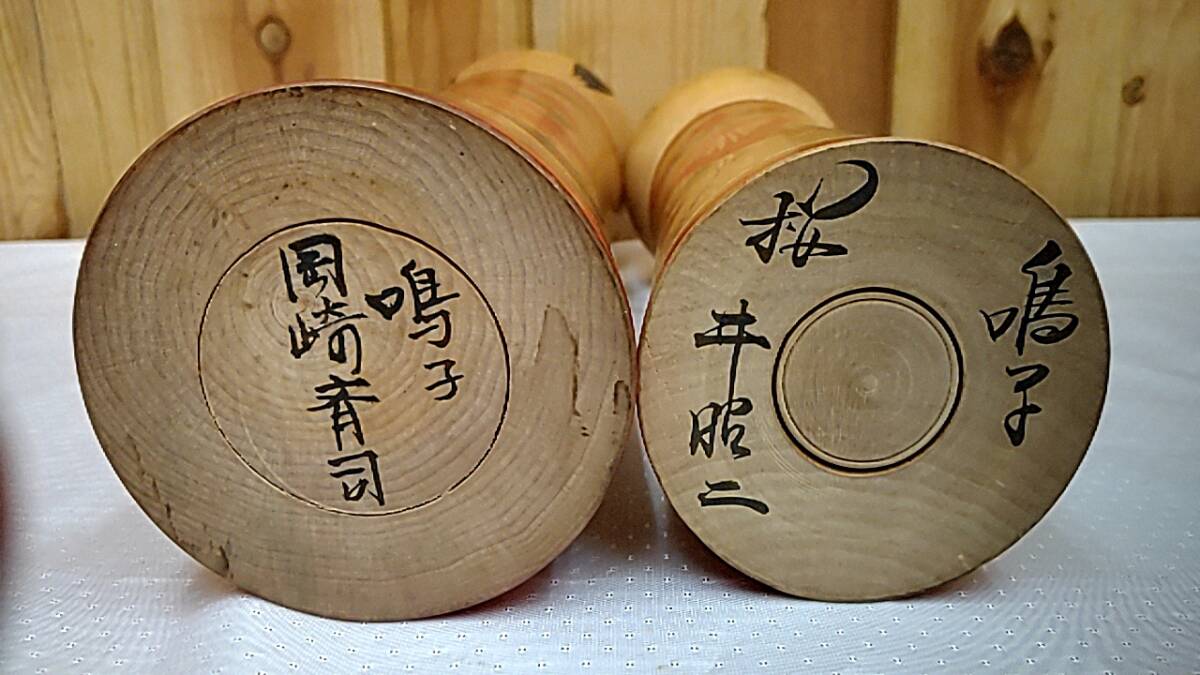 鳴子
岡崎斉司
鳴子
桜井昭二